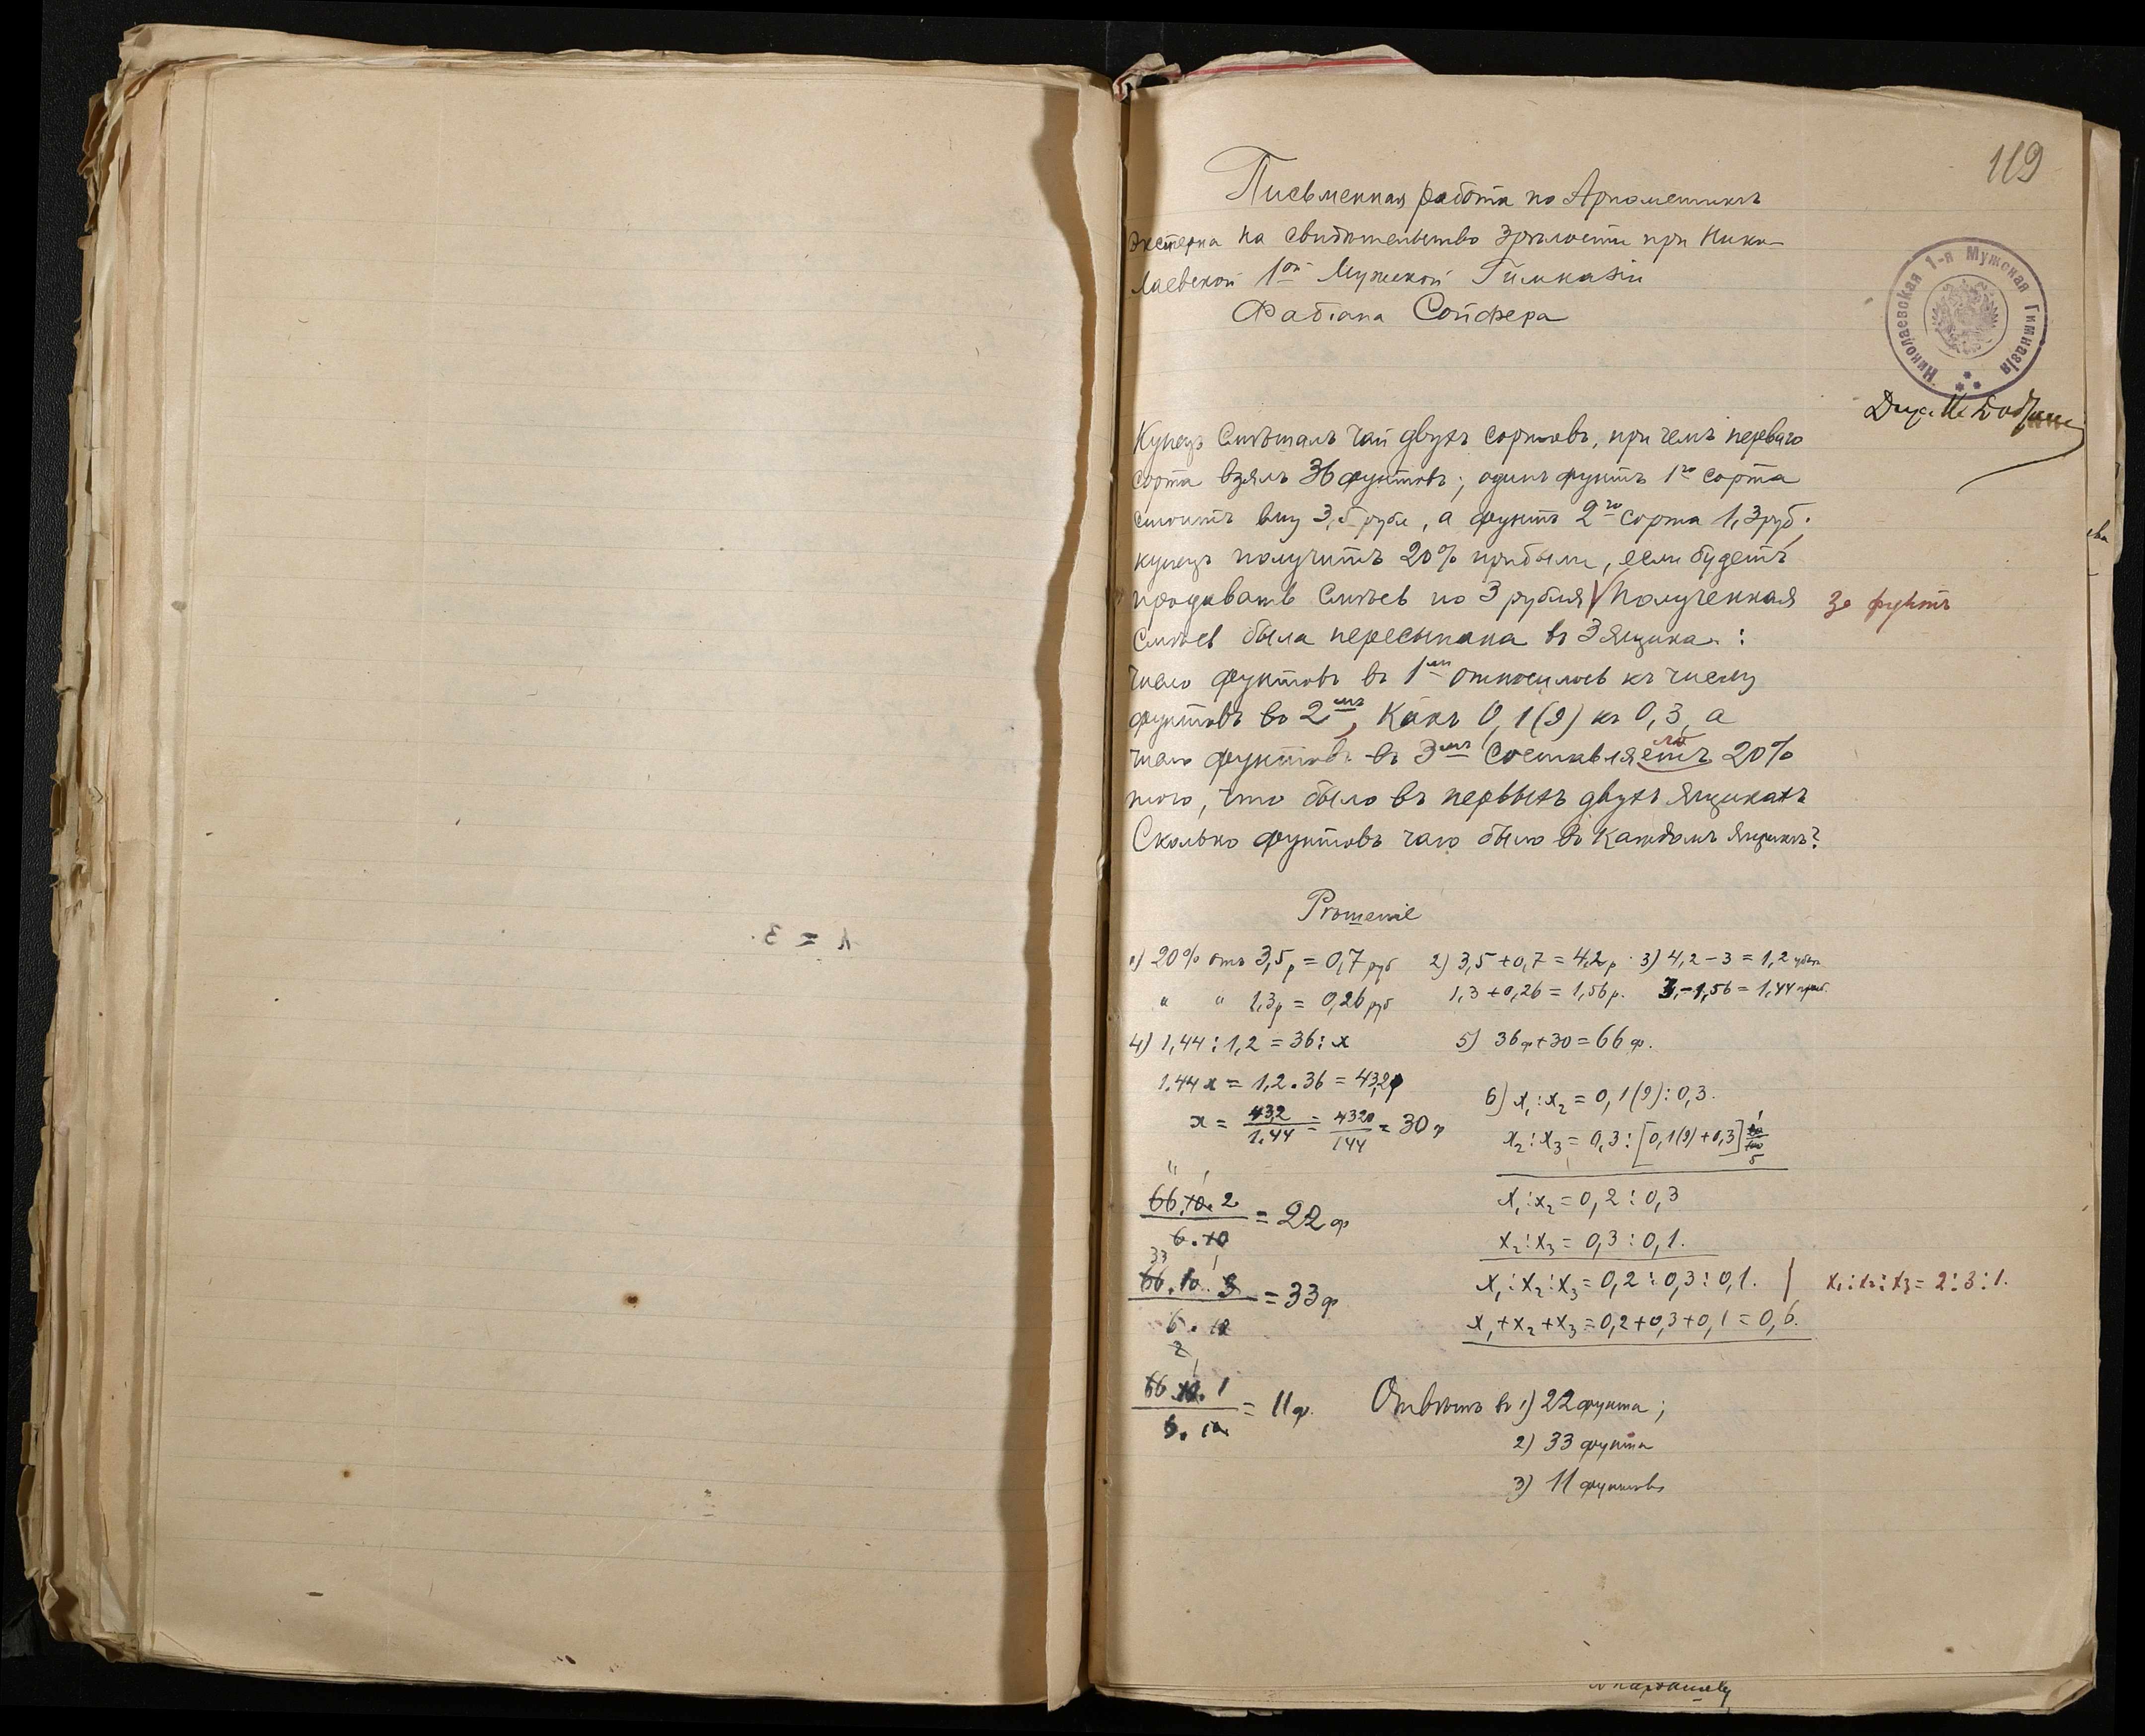 119
Письменная работа по Ариѳметикѣ
экстерна на свидѣтельство зрѣлости при Нико-
лаевской 1ой Мужской Гимназіи
Фабіана Сойфера
Николаевская 1-я Мужская Гимназія
Купецъ смѣшалъ чай двухъ сортовъ, при чемъ перваго
сорта взялъ 36 фунтовъ; одинъ фунтъ 1го сорта
стоитъ ему 3,5 рубл, а фунтъ 2го сорта 1,3 руб.;
купецъ получитъ 20% прибыли, если будетъ
продавать смѣсь по 3 рубля √ Полученная за фунтъ
смѣсь была пересыпана въ 3 ящика:
число фунтовъ въ 1мъ относилось къ числу
фунтовъ во 2мъ, какъ 0,1(9) къ 0,3, а
число фунтовъ въ 3мъ составляетъ ло 20%
того, что было въ первыхъ двухъ ящикахъ
Сколько фунтовъ чаю было въ каждомъ ящикѣ?
Рѣшеніе
1) 20% отъ 3,5 р = 0,7 руб 2) 3,5 + 0,7 = 4,2 р. 3) 4,2 - 3 = 1,2 убыт
" " 1,3 р = 0,26 руб 1,3 + 0,26 = 1,56 р. 3, - 1,56 = 1,44 приб.
4) 1,44 : 1,2 = 36 : x 5) 36 ф + 30 = 66 ф.
1.44 x = 1,2 . 36 = 43,2
x = 43,2/1.44 = 4320/144 = 30 ф
6) x₁ : x₂ = 0,1(9) : 0,3.
x₂ : x₃ = 0,3 : [0,1(9) + 0,3] 20/100 1 5
66.10.2/6.10 = 22 ф 11 1
x₁ : x₂ = 0,2 : 0,3
x₂ : x₃ = 0,3 : 0,1.
66.10.3/6.10 = 33 ф 33 1 2
x₁ : x₂ : x₃ = 0,2 : 0,3 : 0,1. | x₁ : x₂ : x₃ = 2 : 3 : 1.
x₁ + x₂ + x₃ = 0,2 + 0,3 + 0,1 = 0,6.
66.10.1/6.10 = 11 ф. 1
Отвѣтъ въ 1) 22 фунта;
2) 33 фунта
3) 11 фунтовъ